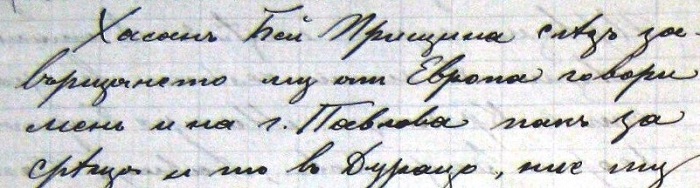 Хасанъ Бей Прищина слѣдъ за-
връщането му от Европа говори
менъ и на г. Павлова пакъ за
срѣща и то въ Дурацо, ние му